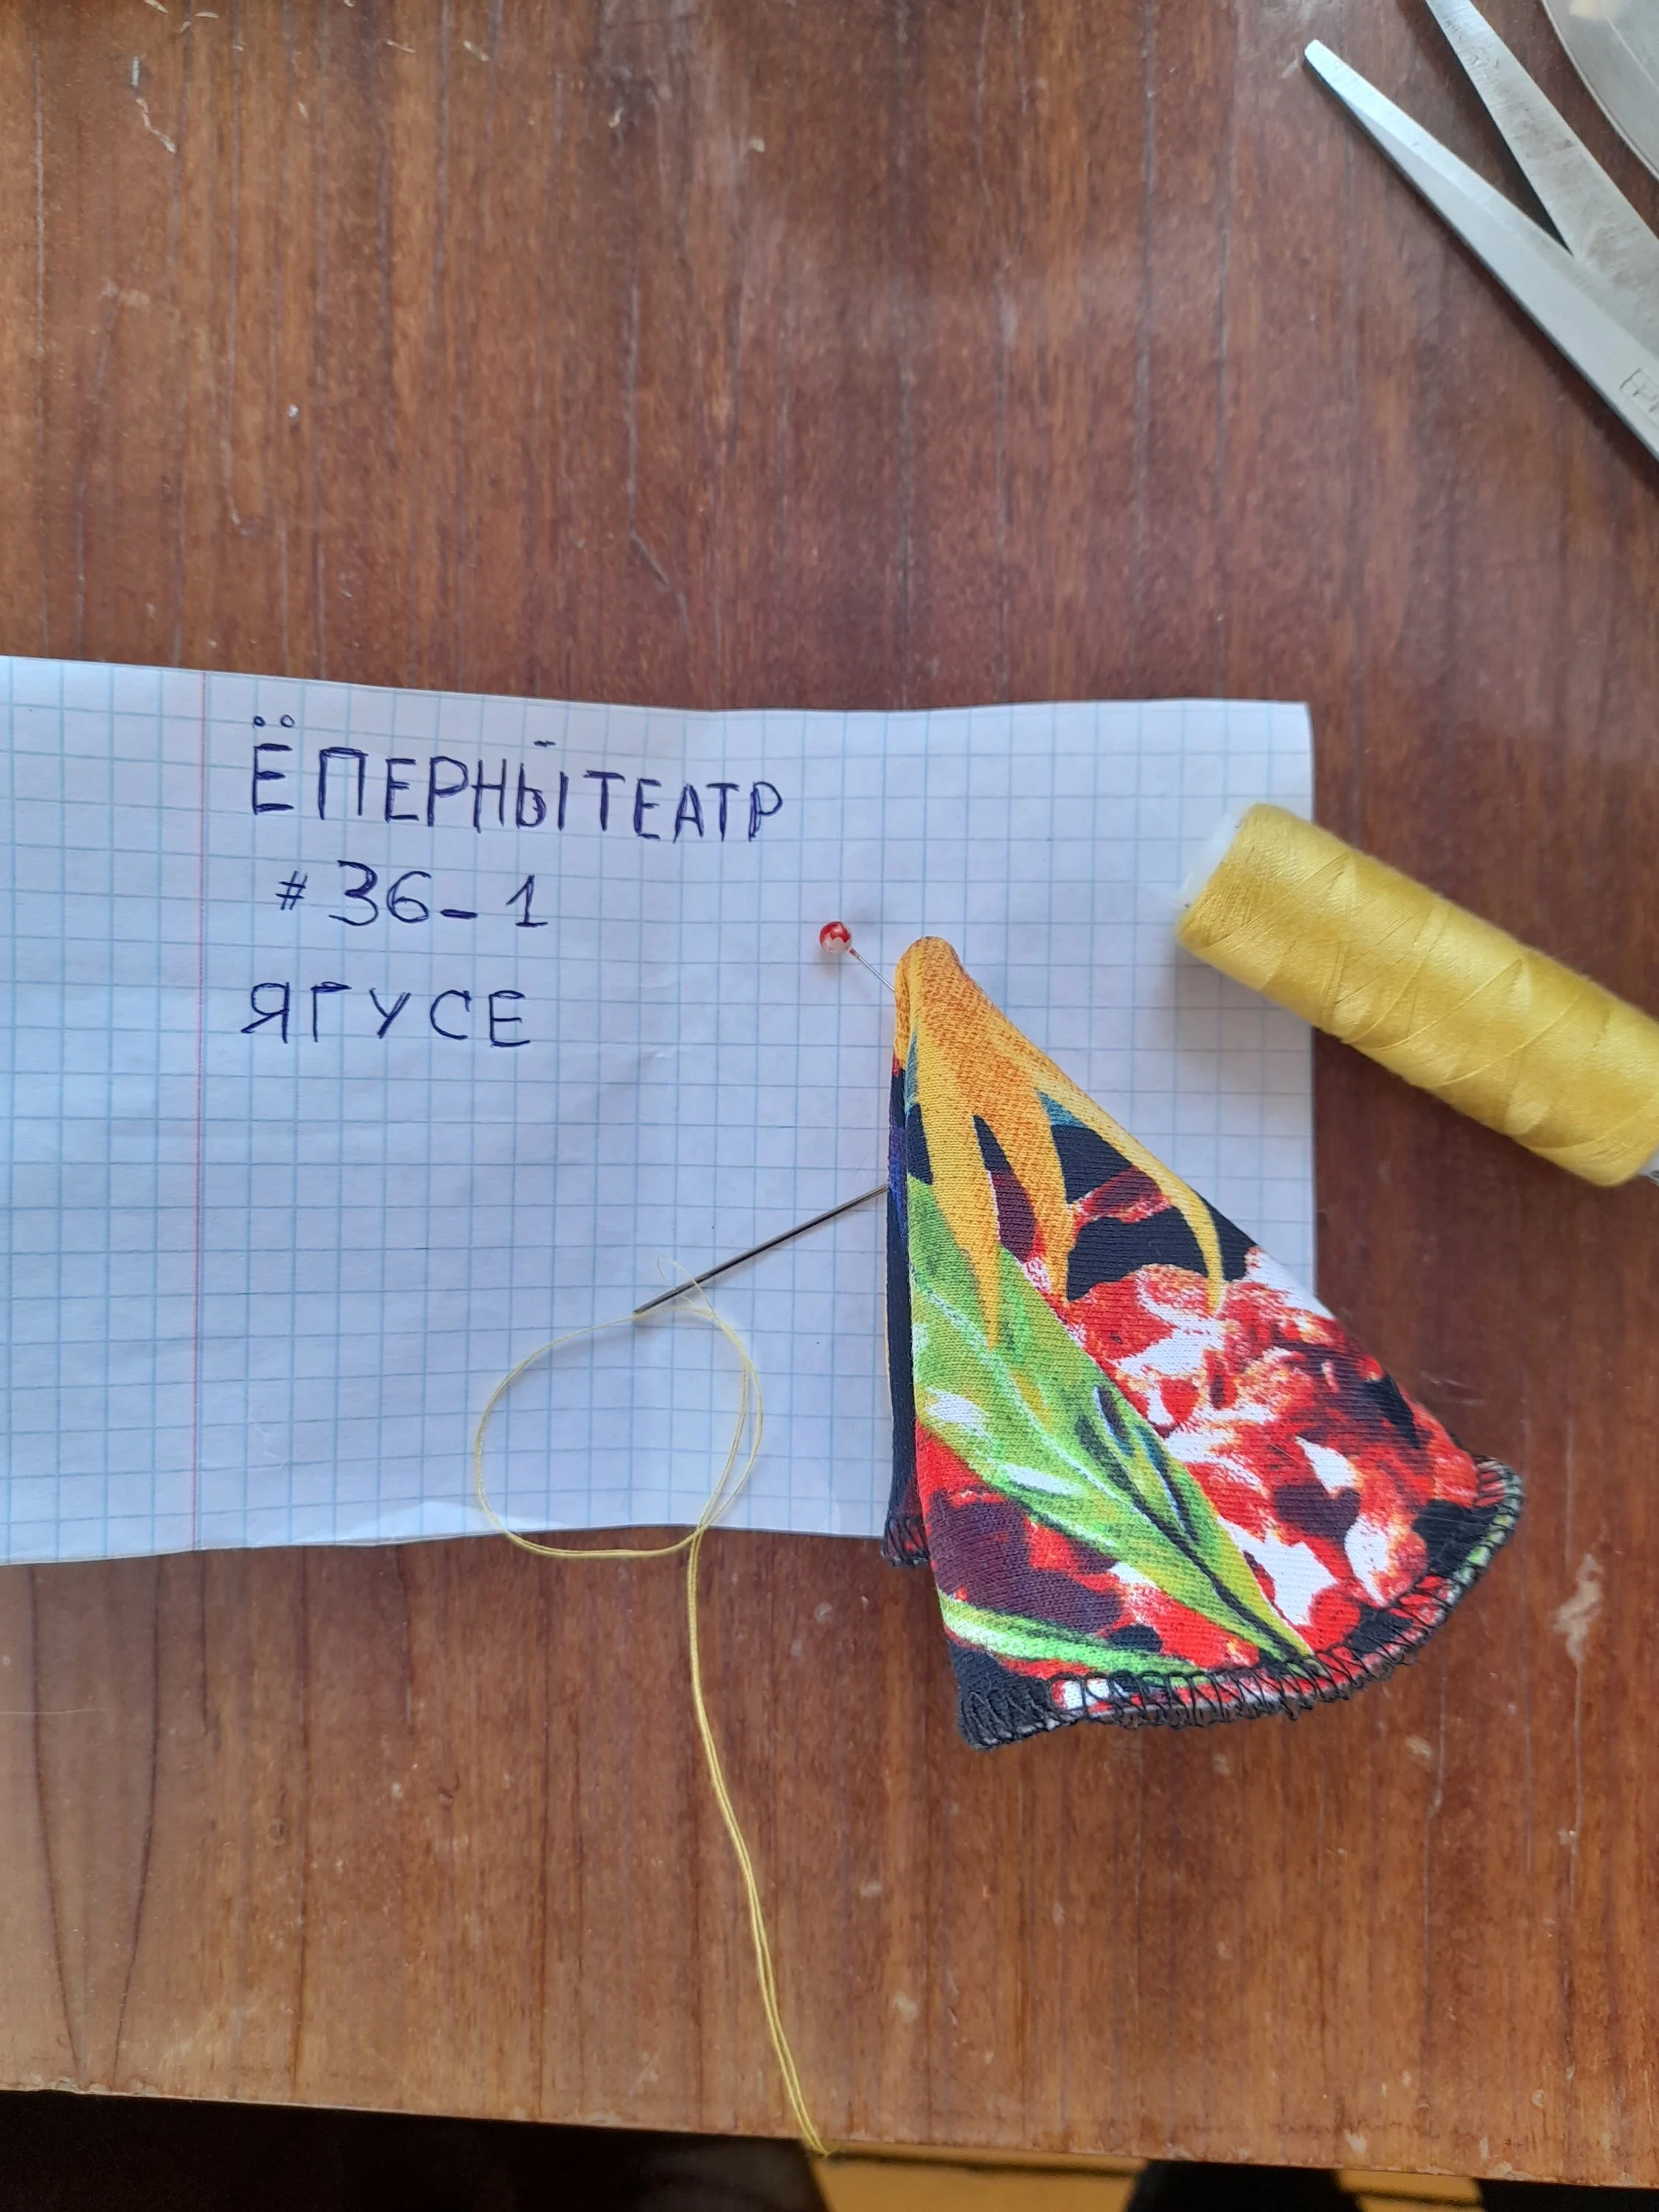 ЁПЕРНЫЙТЕАТР
#36-1
ЯГУСЕ